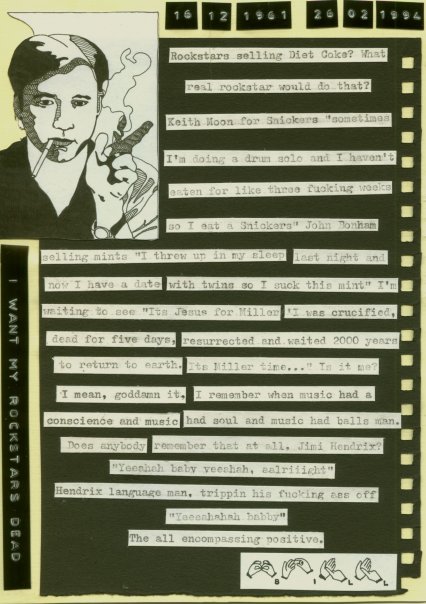 16 12 1961 26 02 1994
Rockstars selling Diet Coke? What
real rockstar would do that?
Keith Moon for Snickers "sometimes
I'm doing a drum solo and I haven't
eaten for like three fucking weeks
so I eat a Snickers" John Bonham
selling mints "I threw up in my sleep last night and
now I have a date with twins so I suck this mint" I'm
waiting to see "Its Jesus for Miller 'I was crucified,
dead for five days, resurrected and waited 2000 years
to return to earth. Its Miller time..." Is it me?
'I mean, goddamn it, I remember when music had a
conscience and music had soul and music had balls man.
Does anybody remember that at all, Jimi Hendrix?
"Yeeahah baby yeeshah, aalriiight"
Hendrix language man, trippin his fucking ass off
"Yaeeahahah babby"
The all encompassing positive.
I WANT MY ROCKSTARS DEAD
B I L L